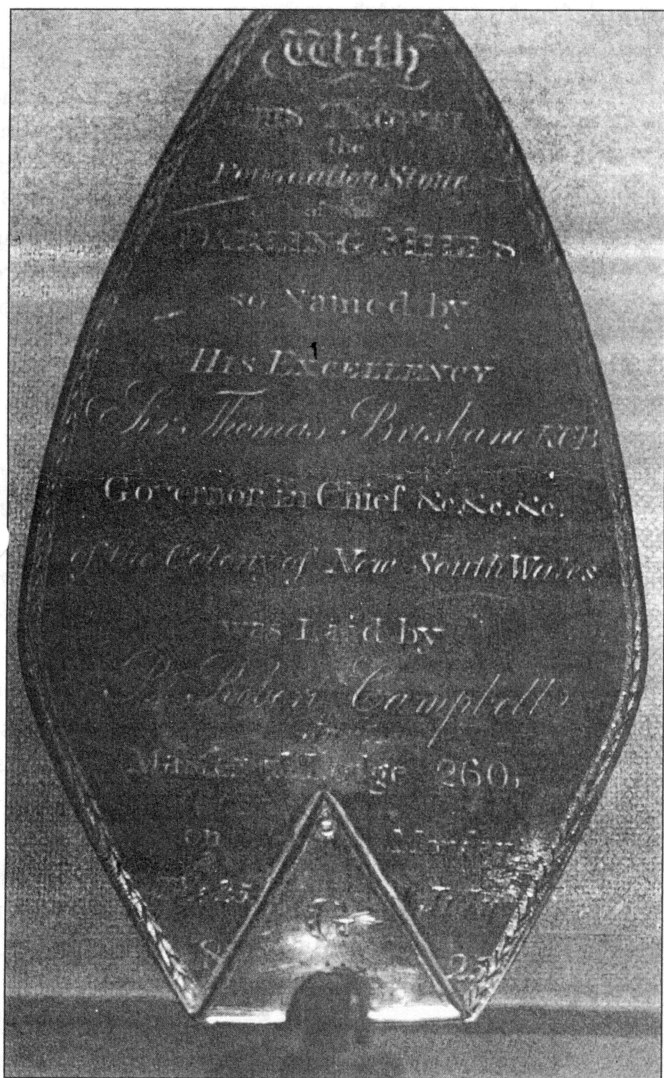 With
THIS TROWEL
the
Foundation Stone
of the
DARLING MILLS
so Named by
HIS EXCELLENCY
Sir Thomas Brisbane KCB
Governor in Chief &c.&c.&c.
of the Colony of New South Wales
was Laid by
Br. Robert Campbell
Master of Lodge 260,
on Monday
25
G
25